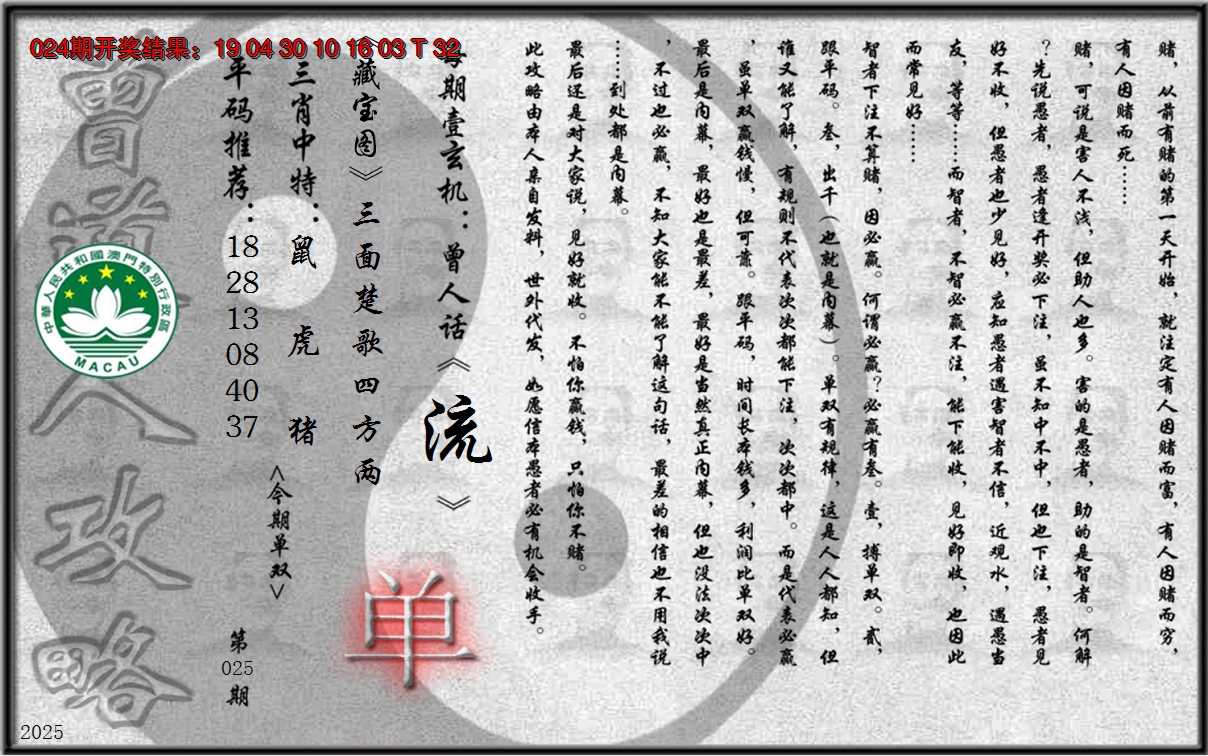 024期开奖结果：19 04 30 10 16 03 T 32
赌，从前有赌的第一天开始，就注定有人因赌而富，有人因赌而穷，
有人因赌而死……
赌，可说是害人不浅，但助人也多。害的是愚者，助的是智者。何解
？先说愚者，愚者逢开奖必下注，虽不知中不中，但也下注，愚者见
好不收，但愚者也少见好，应知愚者遇害智者不信，近观水，遇愚当
友，等等……而智者，不智必赢不注，能下能收，见好即收，也因此
而常见好……
智者下注不算赌，因必赢。何谓必赢？必赢有叁。壹，搏单双。贰，
跟平码。叁，出千（也就是内幕）。单双有规律，这是人人都知，但
谁又能了解，有规则不代表次次都能下注，次次都中。而是代表必赢
，虽单双赢钱慢，但可靠。跟平码，时间长本钱多，利润比单双好。
最后是内幕，最好也是最差，最好是当然真正内幕，但也没法次次中
，不过也必赢，不知大家能不能了解这句话，最差的相信也不用我说
……到处都是内幕。
最后还是对大家说，见好就收。不怕你赢钱，只怕你不赌。
此攻略由本人亲自发料，世外代发，如愿信本愚者必有机会收手。
每期壹玄机：曾人话《流》
《藏宝图》三面楚歌四方两
单
三肖中特：鼠 虎 猪
<今期单双>
平码推荐：18 28 13 08 40 37
第025期
曾道人攻略
中華人民共和國澳門特別行政區
MACAU
2025